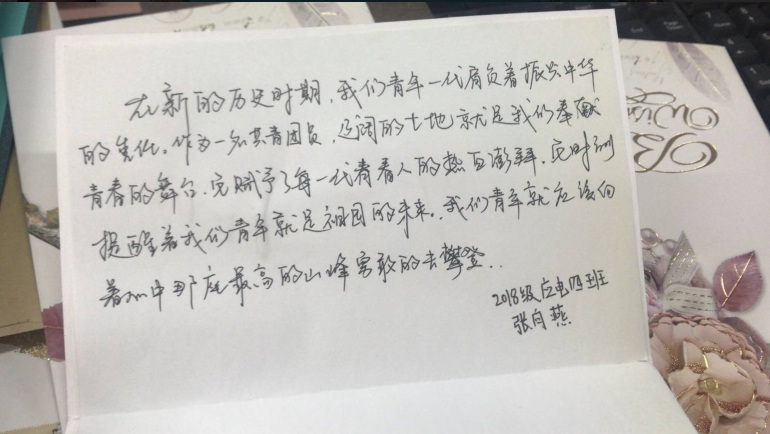 在新的历史时期，我们青年一代肩负着振兴中华
的责任。作为一名共青团员，辽阔的土地就是我们奉献
青春的舞台，它赋予了每一代青春人的热血澎湃，它时刻
提醒着我们青年就是祖国的未来，我们青年就应该向
着心中那座最高的山峰勇敢的去攀登..
2018级应电四班
张向燕
Best
Wishes